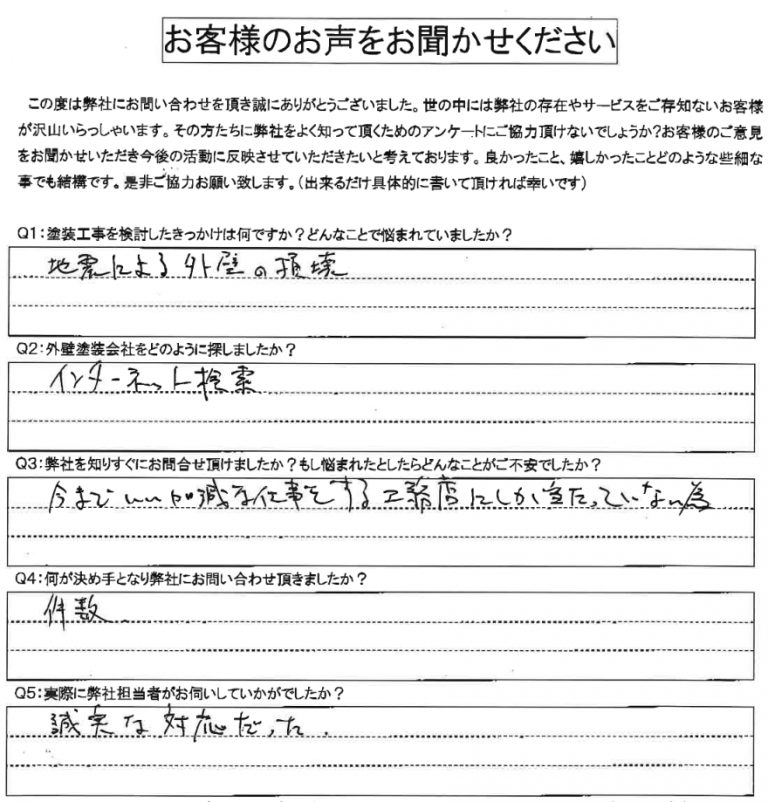 お客様のお声をお聞かせください
この度は弊社にお問い合わせを頂き誠にありがとうございました。世の中には弊社の存在やサービスをご存知ないお客様
が沢山いらっしゃいます。その方たちに弊社をよく知って頂くためのアンケートにご協力頂けないでしょうか?お客様のご意見
をお聞かせいただき今後の活動に反映させていただきたいと考えております。良かったこと、嬉しかったことどのような些細な
事でも結構です。是非ご協力お願い致します。(出来るだけ具体的に書いて頂ければ幸いです)
Q1:塗装工事を検討したきっかけは何ですか?どんなことで悩まれていましたか?
地震による外壁の損壊
Q2:外壁塗装会社をどのように探しましたか?
インターネット検索
Q3:弊社を知りすぐにお問合せ頂けましたか?もし悩まれたとしたらどんなことがご不安でしたか?
今までいい加減な仕事をする工務店にしか当たっていない為
Q4:何が決め手となり弊社にお問い合わせ頂きましたか?
件数
Q5:実際に弊社担当者がお伺いしていかがでしたか?
誠実な対応だった.